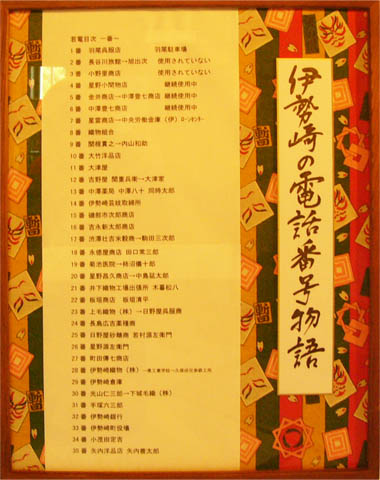 伊勢崎の電話番号物語
若電目次 一番～
1番 羽尾呉服店 羽尾駐車場
2番 長谷川旅館→旭出次 使用されていない
3番 小野里商店 使用されていない
4番 星野小間物店 継続使用中
5番 金井商店→中澤豊七商店 継続使用中
6番 中澤豊七商店 継続使用中
7番 星菅商店→中央労働金庫(伊)ローンセンター
8番 織物組合
9番 関根貫之→内山和助
10番 大竹洋品店
11番 大津屋
12番 吉野屋 関重兵衛→大津家
13番 中澤薬局 中澤八十 同時太郎
14番 伊勢崎芸妓取締所
15番 磯部市次郎商店
16番 吉永新太郎商店
17番 渋澤壮吉米穀商→駒田三次郎
18番 永徳屋商店 田口常三郎
19番 菊池医院→柿沼儀十郎
20番 星野昌久商店→中島延太郎
21番 井下織物工場出張所 木暮松八
22番 板垣商店 板垣清平
23番 上毛織物(株)→日野屋呉服商
24番 長島広吉薬種商
25番 日野屋砂糖商 若村源左衛門
26番 星野源左衛門
27番 町田傳七商店
28番 伊勢崎織物(株)
29番 伊勢崎倉庫
30番 光山仁三郎→下城毛織(株)
31番 手塚六三郎
32番 伊勢崎銀行
33番 伊勢崎町役場
34番 小茂田定吉
35番 矢内洋品店 矢内豊太郎